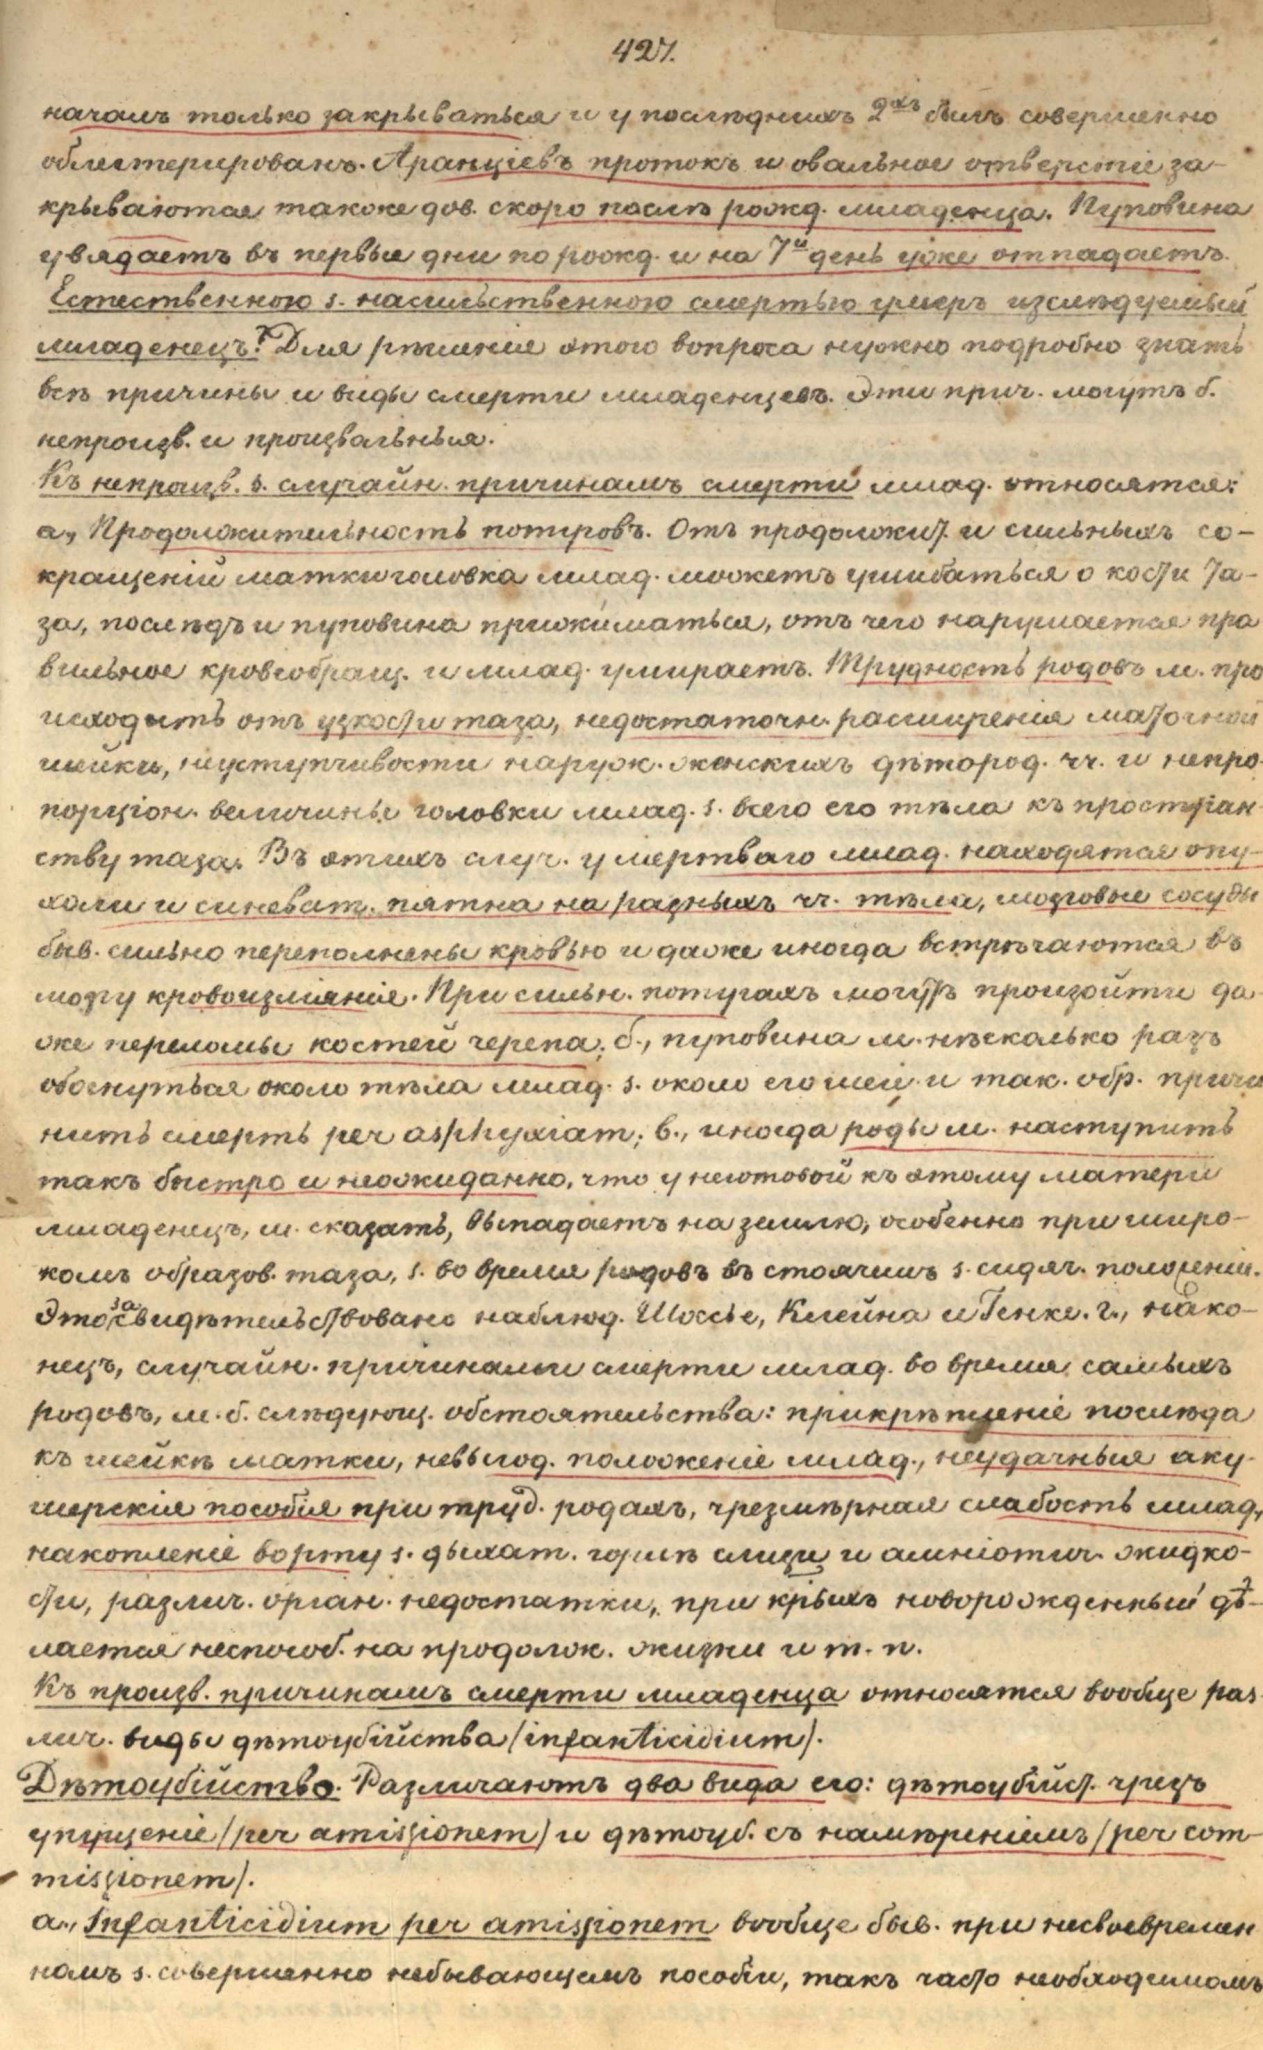 427.
началъ только закрываться и у послѣднихъ 2хъ былъ совершенно
облитерированъ. Аранціевъ протокъ и овальное отверстіе за-
крываются также дов. скоро послѣ рожд. младенца. Пуповина
увядаетъ въ первые дни по рожд. и на 7й день уже отпадаетъ.
Естественною s. насильственною смертью умеръ изслѣдуемый
младенецъ? Для рѣшенія этого вопроса нужно подробно знать
всѣ причины и виды смерти младенцевъ. Эти прич. могутъ б.
непроизв. и произвольныя.
Къ непроизв. s. случайн. причинамъ смерти млад. относятся:
а., Продолжительность потуговъ. Отъ продолжит. и сильныхъ со-
кращеній матки головка млад. можетъ ушибаться о кости та-
за, послѣдъ и пуповина прижиматься, отъ чего нарушается пра
вильное кровеобращ. и млад. умираетъ. Трудность родовъ м. про
исходить отъ узкости таза, недостаточн. расширенія маточной
шейки, неуступчивости наруж. женскихъ дѣтород. чч. и непро-
порціон. величины головки млад. s. всего его тѣла къ простран-
ству таза. Въ этихъ случ. у мертваго млад. находятся опу-
холи и синеват. пятна на разныхъ чч. тѣла, мозговые сосуды
быв. сильно переполнены кровью и даже иногда встрѣчаются въ
мозгу кровоизліянія. При сильн. потугахъ могутъ произойти да-
же переломы костей черепа; б., пуповина м. нѣсколько разъ
обогнуться около тѣла млад. s. около его шеи и так. обр. причи
нить смерть per asphyxiam; в., иногда роды м. наступить
такъ быстро и неожиданно, что у неготовой къ этому матери
младенецъ, м. сказать, выпадаетъ на землю, особенно при широ-
комъ образов. таза, s. во время родовъ въ стоячемъ s. сидяч. положеніи.
Это засвидѣтельствовано наблюд. Шоссье, Клейна и Генке. г., нако-
нецъ, случайн. причинами смерти млад. во время самыхъ
родовъ, м. б. слѣдующ. обстоятельства: прикрѣпленіе послѣда
къ шейкѣ матки, невыгод. положеніе млад., неудачныя аку-
шерскія пособія при труд. родахъ, чрезмѣрная слабость млад.,
накопленіе во рту s. дыхат. горлѣ слизи и амніотич. жидко-
сти, различ. орган. недостатки, при крыхъ новорожденный дѣ-
лается неспособ. на продолж. жизни и т. п.
Къ произв. причинамъ смерти младенца относятся вообще раз-
лич. виды дѣтоубійства /infanticidium/.
Дѣтоубійство. Различаютъ два вида его: дѣтоубійст. чрезъ
упущеніе /per amissionem/ и дѣтоуб. съ намѣреніемъ /per com-
missionem/.
а., Infanticidium per amissionem вообще быв. при несвоевремен
номъ s. совершенно небывающемъ пособіи, такъ часто необходимомъ